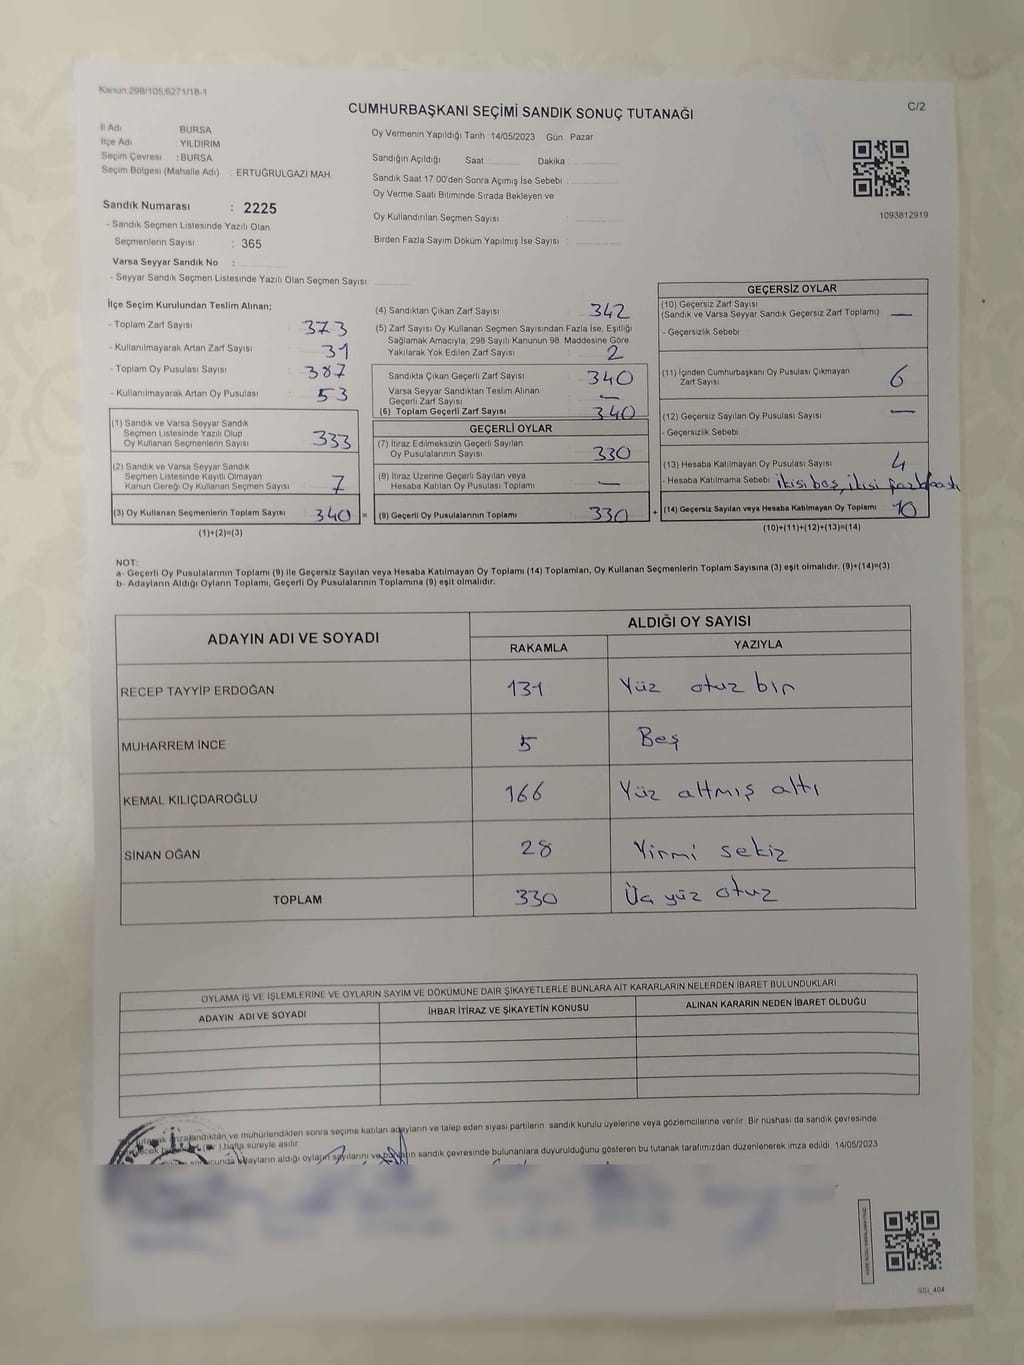 Kanun.298/105,6271/18-1
CUMHURBAŞKANI SEÇİMİ SANDIK SONUÇ TUTANAĞI
C/2
İl Adı BURSA
İlçe Adı YILDIRIM
Seçim Çevresi : BURSA
Seçim Bölgesi (Mahalle Adı) : ERTUĞRULGAZİ MAH.
Oy Vermenin Yapıldığı Tarih 14/05/2023 Gün Pazar
Sandığın Açıldığı Saat ........... Dakika ...........
Sandık Saat 17:00'den Sonra Açımış İse Sebebi : ...........
Oy Verme Saati Bitiminde Sırada Bekleyen ve
Oy Kullandırılan Seçmen Sayısı : ...........
Birden Fazla Sayım Döküm Yapılmış İse Sayısı : ...........
1093812919
Sandık Numarası : 2225
- Sandık Seçmen Listesinde Yazılı Olan
Seçmenlerin Sayısı : 365
Varsa Seyyar Sandık No : ...........
- Seyyar Sandık Seçmen Listesinde Yazılı Olan Seçmen Sayısı: ...........
İlçe Seçim Kurulundan Teslim Alınan;
- Toplam Zarf Sayısı 373
- Kullanılmayarak Artan Zarf Sayısı 31
- Toplam Oy Pusulası Sayısı 387
- Kullanılmayarak Artan Oy Pusulası 53
(1) Sandık ve Varsa Seyyar Sandık
Seçmen Listesinde Yazılı Olup
Oy Kullanan Seçmenlerin Sayısı 333
(2) Sandık ve Varsa Seyyar Sandık
Seçmen Listesinde Kayıtlı Olmayan
Kanun Gereği Oy Kullanan Seçmen Sayısı 7
(3) Oy Kullanan Seçmenlerin Toplam Sayısı 340 =
(1)+(2)=(3)
(4) Sandıktan Çıkan Zarf Sayısı 342
(5) Zarf Sayısı Oy Kullanan Seçmen Sayısından Fazla İse, Eşitliği
Sağlamak Amacıyla, 298 Sayılı Kanunun 98. Maddesine Göre
Yakılarak Yok Edilen Zarf Sayısı 2
Sandıkta Çıkan Geçerli Zarf Sayısı 340
Varsa Seyyar Sandıktan Teslim Alınan
Geçerli Zarf Sayısı —
(6) Toplam Geçerli Zarf Sayısı 340
GEÇERLİ OYLAR
(7) İtiraz Edilmeksizin Geçerli Sayılan
Oy Pusulalarının Sayısı 330
(8) İtiraz Üzerine Geçerli Sayılan veya
Hesaba Katılan Oy Pusulası Toplamı —
(9) Geçerli Oy Pusulalarının Toplamı 330 +
GEÇERSİZ OYLAR
(10) Geçersiz Zarf Sayısı
(Sandık ve Varsa Seyyar Sandık Geçersiz Zarf Toplamı) —
- Geçersizlik Sebebi
(11) İçinden Cumhurbaşkanı Oy Pusulası Çıkmayan
Zarf Sayısı 6
(12) Geçersiz Sayılan Oy Pusulası Sayısı —
- Geçersizlik Sebebi
(13) Hesaba Katılmayan Oy Pusulası Sayısı 4
- Hesaba Katılmama Sebebi ikisi boş, ikisi
(14) Geçersiz Sayılan veya Hesaba Katılmayan Oy Toplamı 10
(10)+(11)+(12)+(13)=(14)
NOT:
a- Geçerli Oy Pusulalarının Toplamı (9) ile Geçersiz Sayılan veya Hesaba Katılmayan Oy Toplamı (14) Toplamları, Oy Kullanan Seçmenlerin Toplam Sayısına (3) eşit olmalıdır. (9)+(14)=(3)
b- Adayların Aldığı Oyların Toplamı, Geçerli Oy Pusulalarının Toplamına (9) eşit olmalıdır.
ADAYIN ADI VE SOYADI
ALDIĞI OY SAYISI
RAKAMLA YAZIYLA
RECEP TAYYİP ERDOĞAN 131 Yüz otuz bir
MUHARREM İNCE 5 Beş
KEMAL KILIÇDAROĞLU 166 Yüz altmış altı
SİNAN OĞAN 28 Yirmi sekiz
TOPLAM 330 Üç yüz otuz
OYLAMA İŞ VE İŞLEMLERİNE VE OYLARIN SAYIM VE DÖKÜMÜNE DAİR ŞİKAYETLERLE BUNLARA AİT KARARLARIN NELERDEN İBARET BULUNDUKLARI
ADAYIN ADI VE SOYADI İHBAR İTİRAZ VE ŞİKAYETİN KONUSU ALINAN KARARIN NEDEN İBARET OLDUĞU
imzalandıktan ve mühürlendikten sonra seçime katılan adayların ve talep eden siyasi partilerin sandık kurulu üyelerine veya gözlemcilerine verilir. Bir nüshası da sandık çevresinde
hafta süreyle asılır.
adayların aldığı oyların sayılarını ve sandık çevresinde bulunanlara duyurulduğunu gösteren bu tutanak tarafımızdan düzenlenerek imza edildi. 14/05/2023
SSI_404